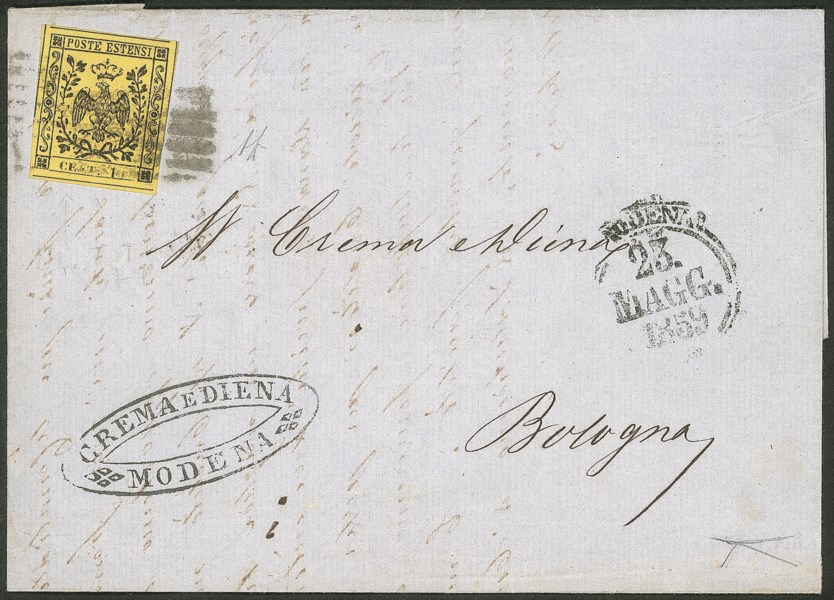 POSTE ESTENSI
CENT. 15
Crema e Diena
MODENA
23.
MAGG.
1859
CREMA E DIENA
MODENA
Bologna